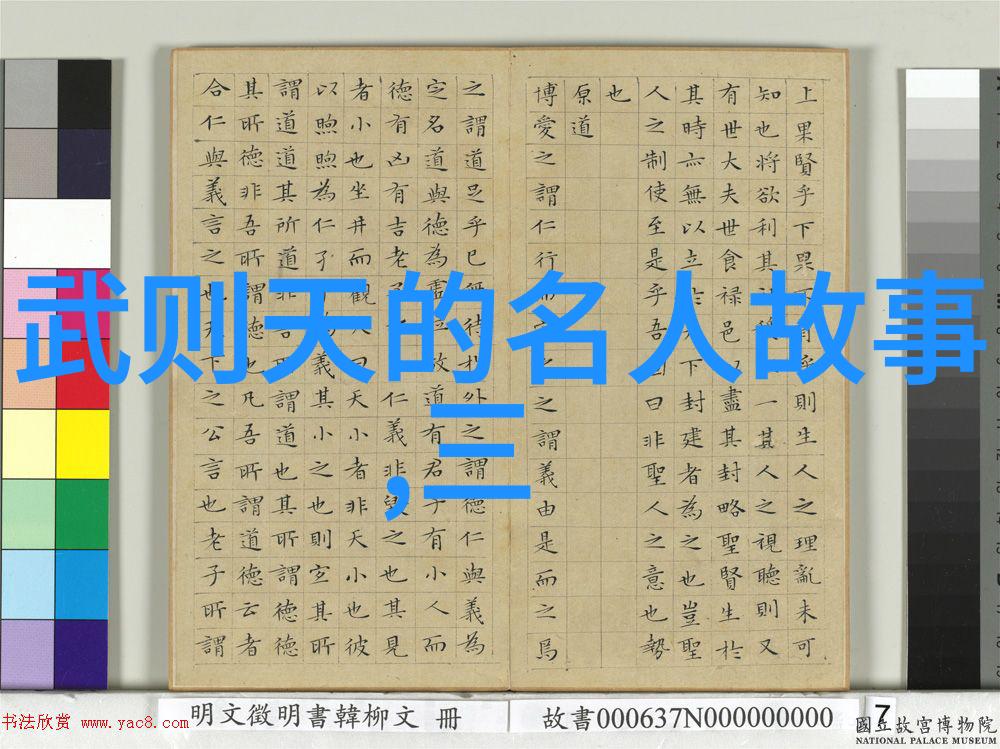 武则天的名人故事
,三
上果賢乎下果不肖乎則生人之理亂未可
知也將欲利其社稷以一其人之視聽則又
有世大夫世食禄邑以盡其封略聖賢生於
其時亦無以立於天下封建者為之也豈聖
人之制使至是乎吾固曰非聖人之意也勢
也
原道
博愛之謂仁行而宜之之謂義由是而之焉
之謂道足乎已無待於外之謂德仁與義為
定名道與德為虛位故道有君子有小人而
德有凶有吉老子之小仁義非毀之也其見
者小也坐井而觀天曰天小者非天小也彼
以煦煦為仁孑孑為義其小之也則宜其所
謂道道其所道非吾所謂道也其所謂德德
其所德非吾所謂德也凡吾所謂道德云者
合仁與義言之也天下之公言也老子所謂
明文徵明書韓柳文 冊
故書000637N000000000
7
國立故宮博物院
NATIONAL PALACE MUSEUM
书法欣赏 www.yac8.com